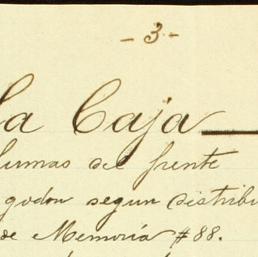 - 3 -
La Caja
sumas del frente
godon segun distribu
de Memoria #88.